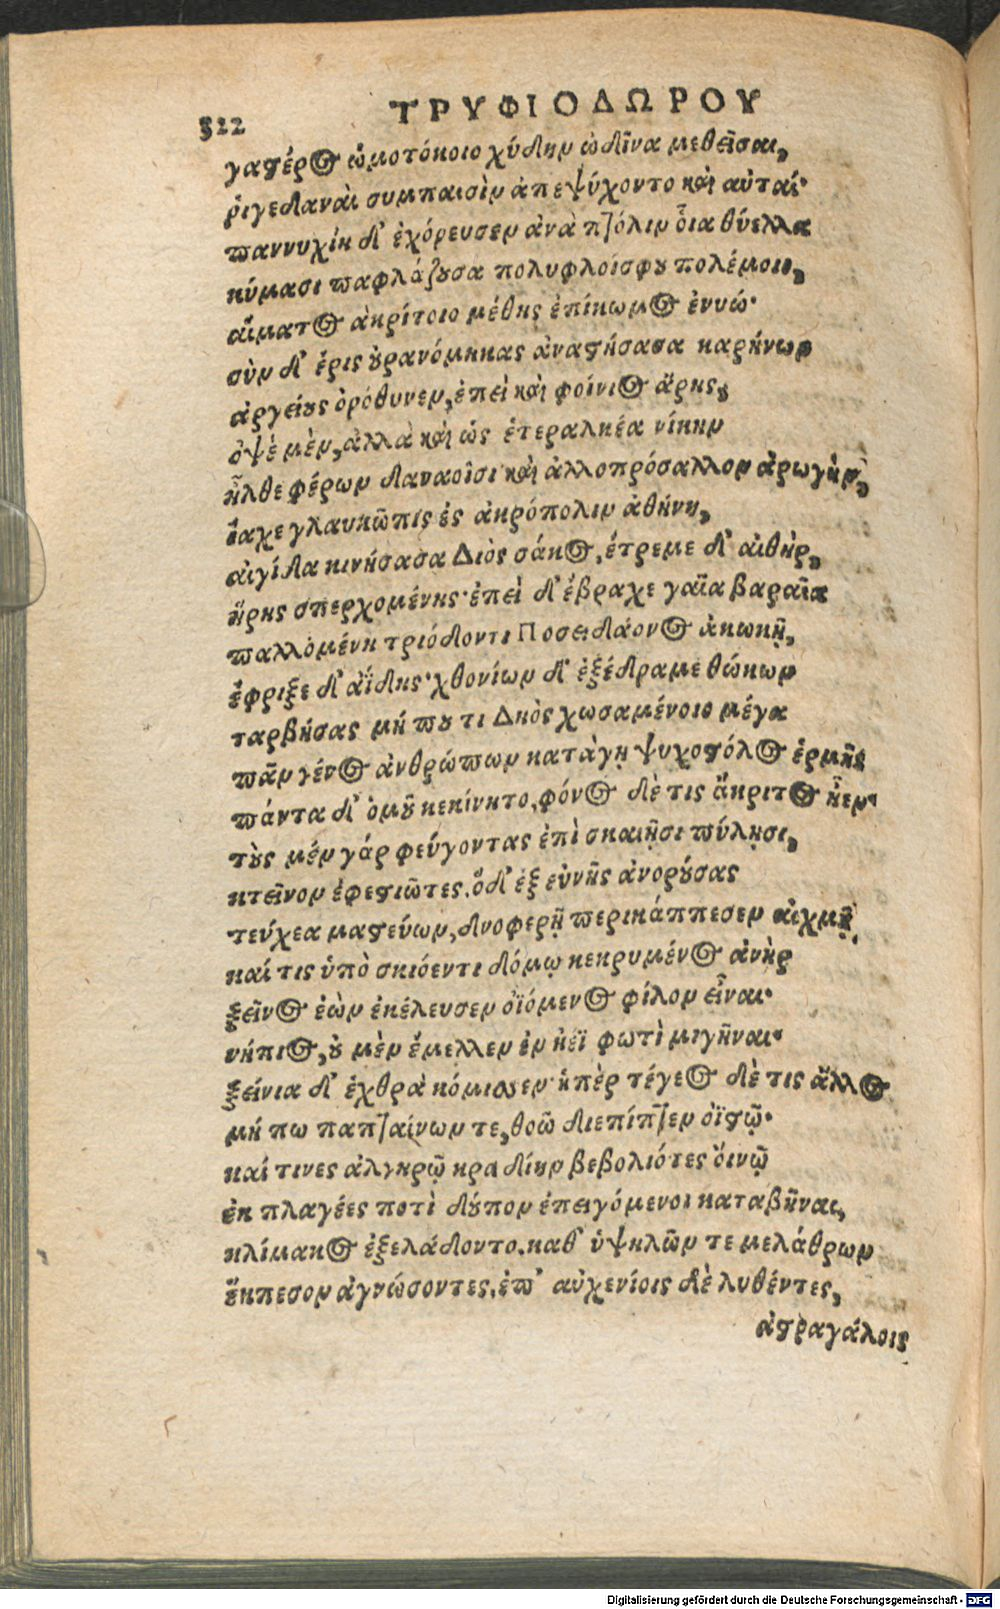 522
ΤΡΥΦΙΟΔΩΡΟΥ
γαστέρος ὠμοτόκοιο χύδην ὠδῖνα μεθεῖσαι,
ῥιγεδαναὶ συμπαισὶν ἀπεψύχοντο καὶ αὐταί·
παννυχίη δ' ἐχόρευσεν ἀνὰ πτόλιν οἷα θύελλα
κύμασι παφλάζουσα πολυφλοίσϕου πολέμοιο,
αἵματος ἀκρίτοιο μέθης ἐπίκωμος ἐνυώ·
σὺν δ' ἔρις οὐρανόμηκας ἀναστήσασα καρήνων
ἀργείους ὀρόθυνεν, ἐπεὶ καὶ φοίνιος ἄρης,
ὀψὲ μὲν, ἀλλὰ καὶ ὣς ἑτεραλκέα νίκην
ἦλθε φέρων δαναοῖσι καὶ ἀλλοπρόσαλλον ἀρωγὴν,
ἴαχε γλαυκῶπις ἐς ἀκρόπολιν ἀθήνη,
αἰγίδα κινήσασα Διὸς σάκος, ἔτρεμε δ' αἰθὴρ,
ἥρης σπερχομένης· ἐπεὶ δ' ἔβραχε γαῖα βαρεῖα
παλλομένη τριόδοντι Ποσειδάονος ἀκωκῇ,
ἔφριξε δ' ἀΐδης· χθονίων δ' ἐξέδραμε θώκων
ταρβήσας μή που τι Διὸς χωσαμένοιο μέγα
πᾶν γένος ἀνθρώπων κατάγῃ ψυχοστόλος ἑρμῆς
πάντα δ' ὁμοῦ κεκίνητο, φόνος δὲ τις ἄκριτος ἦεν·
τοὺς μὲν γάρ φεύγοντας ἐπὶ σκαιῇσι πύλῃσι,
κτεῖνον ἐφεστιῶτες. ὅδ' ἐξ εὐνῆς ἀνορούσας
τεύχεα μαστεύων, δνοφερῇ περικάππεσεν αἰχμῇ.
καί τις ὑπὸ σκιόεντι δόμῳ κεκρυμένος ἀνὴρ
ξεῖνος ἐὼν ἐκέλευσεν ὀϊόμενος φίλον εἶναι·
νήπιος, οὐ μὲν ἔμελλεν ἐν ηέϊ φωτὶ μιγῆναι·
ξείνια δ' ἐχθρὰ κόμισσεν· ὑπὲρ τέγεος δὲ τις ἄλλος
μή πω παπταίνων τε, θοῶ διεπίπτεν ὀϊστῷ·
καί τινες ἀλγηρῷ κραδίην βεβολιότες ὄινῷ
ἐκ πλαγέες ποτὶ δοῦπον ἐπειγόμενοι καταβῆναι,
κλίμακος ἐξελάδοντο. καθ' ὑψηλῶν τε μελάθρων
ἔκπεσον ἀγνώσοντες, ἐπ' αὐχενίοις δὲ λυθέντες,
ἀστραγάλοις
Digitalisierung gefördert durch die Deutsche Forschungsgemeinschaft - DFG